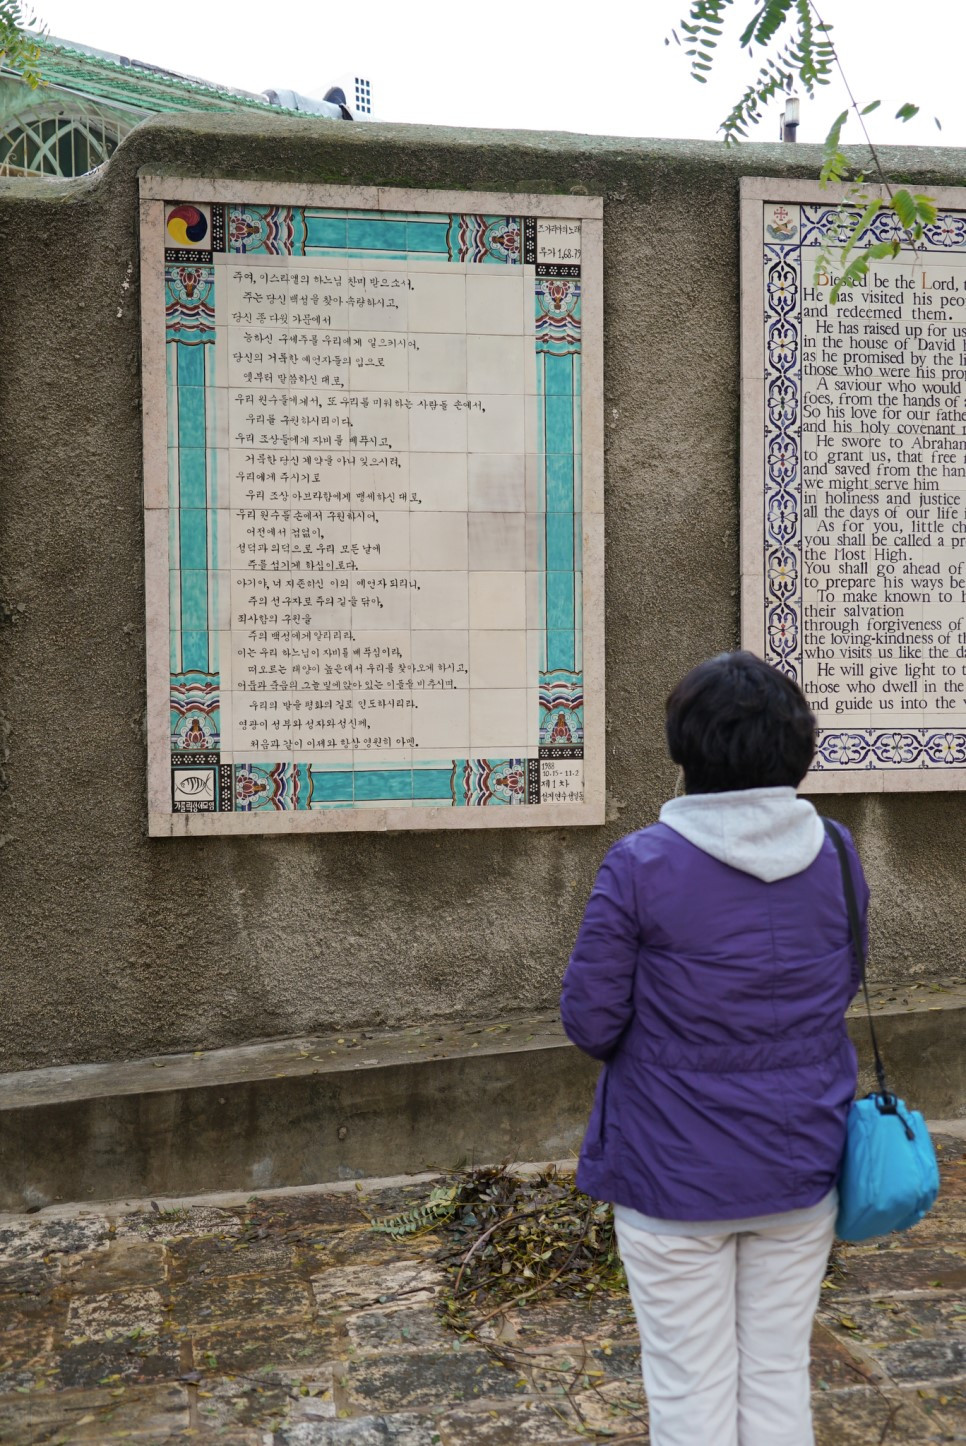 즈가리야의노래
루가 1,68.79
주여, 이스라엘의 하느님 찬미 받으소서.
주는 당신 백성을 찾아 속량하시고,
당신 종 다윗 가문에서
능하신 구세주를 우리에게 일으키시어,
당신의 거룩한 예언자들의 입으로
옛부터 말씀하신 대로,
우리 원수들에게서, 또 우리를 미워하는 사람들 손에서,
우리를 구원하시리이다.
우리 조상들에게 자비를 베푸시고,
거룩한 당신 계약을 아니 잊으시려,
우리에게 주시기로
우리 조상 아브라함에게 맹세하신 대로,
우리 원수들 손에서 구원하시어,
어전에서 겁없이,
성덕과 의덕으로 우리 모든 날에
주를 섬기게 하심이로다.
아기야, 너 지존하신 이의 예언자 되리니,
주의 선구자로 주의 길을 닦아,
죄사함의 구원을
주의 백성에게 알리리라.
이는 우리 하느님이 자비를 베푸심이라,
떠오르는 태양이 높은데서 우리를 찾아오게 하시고,
어둠과 죽음의 그늘 밑에 앉아 있는 이들을 비추시며,
우리의 발을 평화의 길로 인도하시리라.
영광이 성부와 성자와 성신께,
처음과 같이 이제와 항상 영원히 아멘.
1988
10.15-11.2
제1차
성지연수생일동
Blessed be the Lord,
He has visited his
and redeemed them.
He has raised up for us
in the house of David
as he promised by the
those who were his
A saviour who would
foes, from the hands of
So his love for our
and his holy covenant
He swore to Abraham
to grant us, that free
and saved from the
we might serve him
in holiness and justice
all the days of our life
As for you, little
you shall be called a
the Most High.
You shall go ahead of
to prepare his ways
To make known to
their salvation
through forgiveness of
the loving-kindness of
who visits us like the
He will give light to
those who dwell in the
and guide us into the